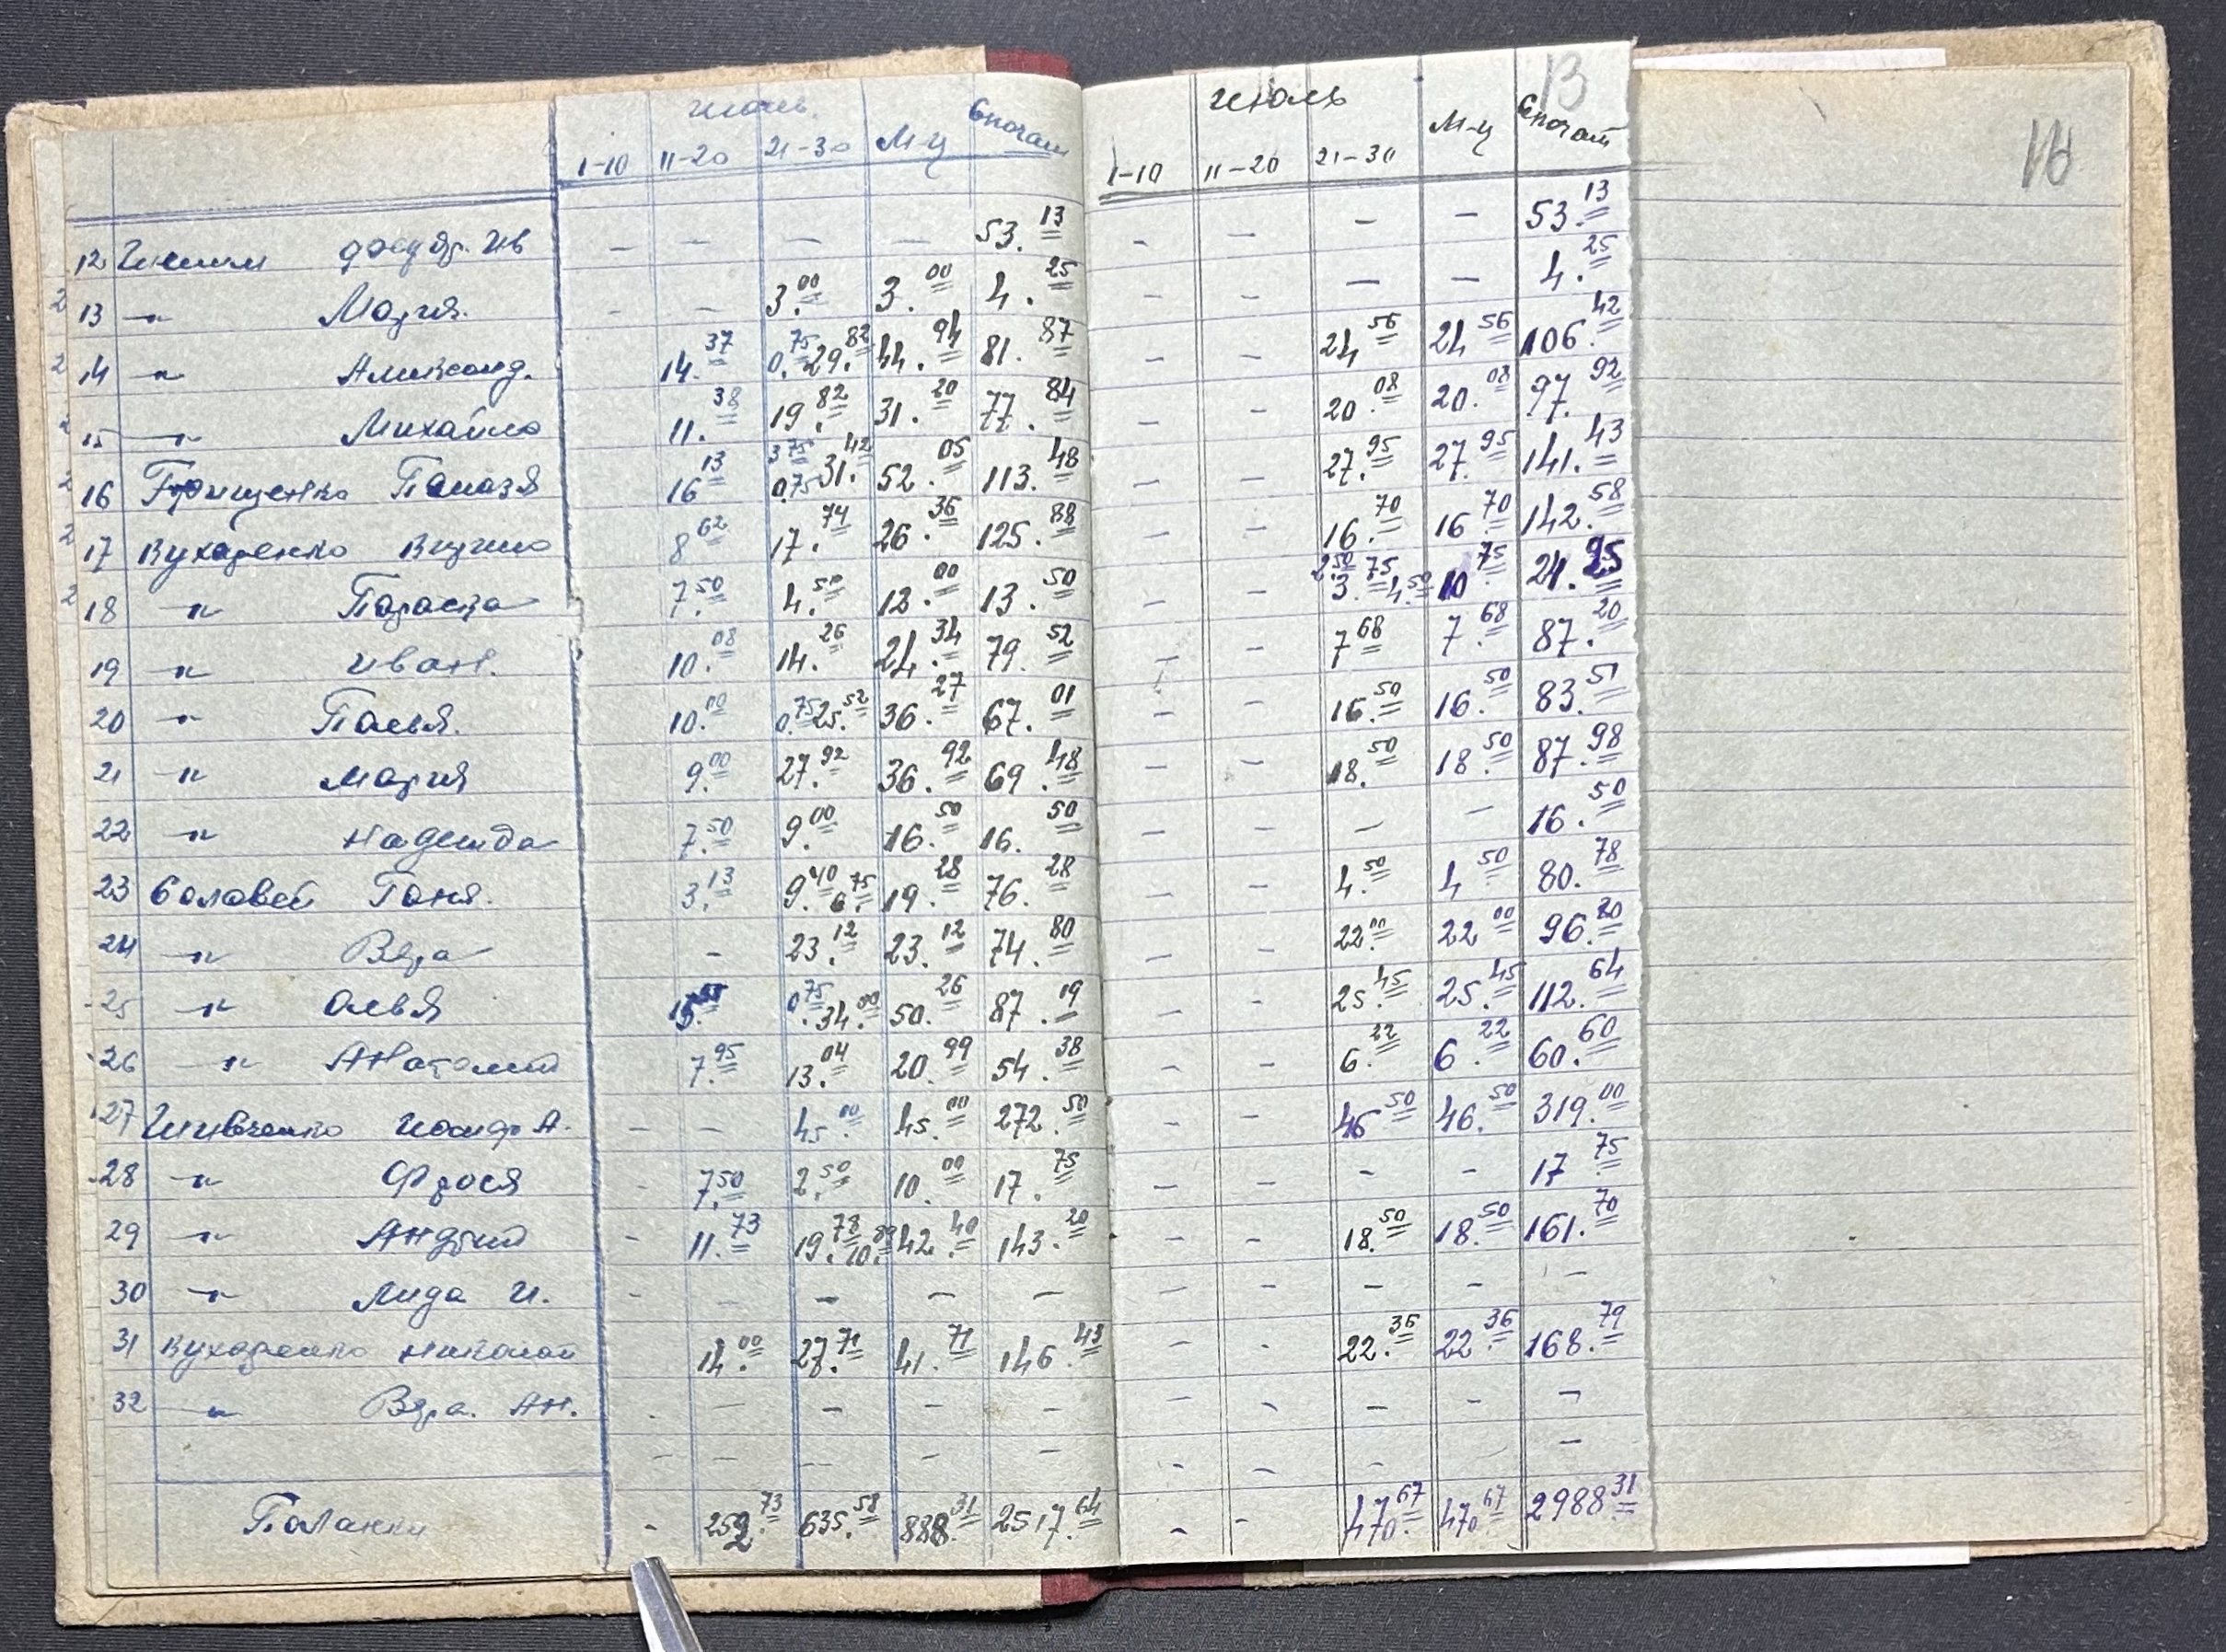 июль июль 13 16
1-10 11-20 21-30 М-ц Споча 1-10 11-20 21-30 М-ц Споча
12 — — — — 53.13 - - — — 53.13
2 13 —"— Мария. - — 3.00 3.00 4.25 — - — — 4.25
2 14 —"— Александ. 14.37 0.75 29.82 44.94 81.87 — - 24.56 24.56 106.42
2 15 —"— Михайло 11.38 19.82 31.20 77.84 — - 20.08 20.08 97.92
2 16 Грищенко 16.13 3.75 0.75 31.42 52.05 113.48 — - 27.95 27.95 141.43
2 17 Кухаренко 8.62 17.74 26.36 125.88 — - 16.70 16.70 142.58
2 18 —"— Параска 7.50 4.50 12.00 13.50 — - 2.50 3.75 4.50 10.75 24.25
19 —"— Иван. 10.08 14.26 24.34 79.52 — - 7.68 7.68 87.20
20 —"— Палья. 10.00 0.75 25.52 36.27 67.01 — - 16.50 16.50 83.51
21 —"— Мария 9.00 27.92 36.92 69.48 — - 18.50 18.50 87.98
22 —"— Надежда 7.50 9.00 16.50 16.50 — - — — 16.50
23 Соловей Ганя. 3.13 9.40 6.75 19.28 76.28 — - 4.50 4.50 80.78
24 —"— Вера - 23.12 23.12 74.80 — - 22.00 22.00 96.80
25 —"— Олья 0.75 34.00 50.26 87.19 — - 25.45 25.45 112.64
26 —"— Анатолий 7.95 13.04 20.99 54.38 - - 6.22 6.22 60.60
27 Шевченко А. — — 45.00 45.00 272.50 — - 46.50 46.50 319.00
28 —"— Фрося - 7.50 2.50 10.00 17.75 — - - - 17.75
29 —"— Андрий - 11.73 19.78 10.89 42.40 143.20 - - 18.50 18.50 161.70
30 —"— Лида И. - - — — — - - — - -
31 Кухаренко Николай 14.00 27.71 41.71 146.43 - - 22.36 22.36 168.79
32 —"— Вера. Ан. - — — - - — - - - —
— — - - - - - - - —
- 252.73 635.58 888.31 2517.64 - - 470.67 470.67 2988.31